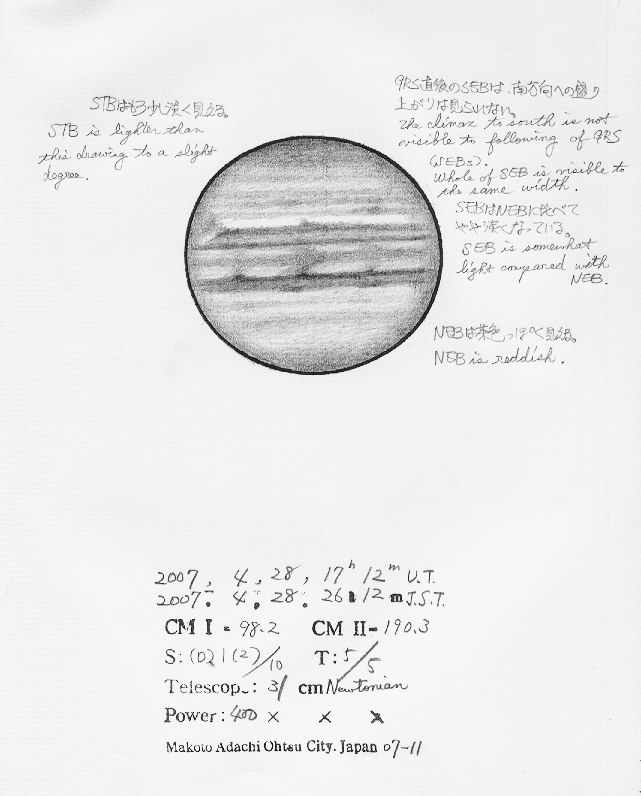 STBはもう少し淡く見える。
STB is lighter than
this drawing to a slight
degree.
GRS直後のSEBは、南方向への盛り
上がりは見られない。
The climax to south is not
visible to following of GRS
(SEBs).
Whole of SEB is visible to
the same width.
SEBはNEBに比べて
やや淡くなっている。
SEB is somewhat
light compared with
NEB.
NEBは茶色っぽく見える。
NEB is reddish.
2007, 4, 28, 17h 12m U.T.
2007. 4. 28. 26 12m J.S.T.
CM I = 98.2 CM II = 190.3
S: (0)1(2)/10 T: 5/5
Telescope: 31 cm Newtonian
Power: 400 × × ×
Makoto Adachi Ohtsu City. Japan 07-11